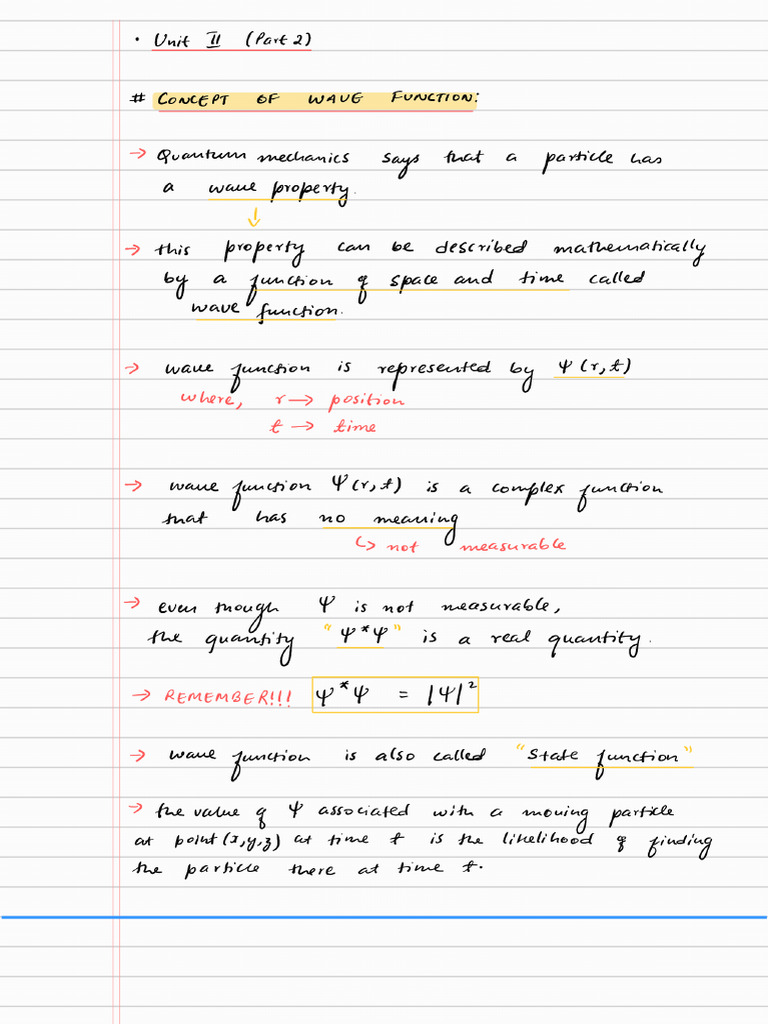 • Unit II (Part 2)
# CONCEPT OF WAVE FUNCTION:
→ Quantum mechanics says that a particle has
a wave property.
↓
→ this property can be described mathematically
by a function of space and time called
wave function.
→ wave function is represented by Ψ(r,t)
where, r → position
t → time
→ wave function Ψ(r,t) is a complex function
that has no meaning
↳ not measurable
→ even though Ψ is not measurable,
the quantity "Ψ*Ψ" is a real quantity.
→ REMEMBER!!! Ψ*Ψ = |Ψ|²
→ wave function is also called "State function"
→ the value of Ψ associated with a moving particle
at point(x,y,z) at time t is the likelihood of finding
the particle there at time t.